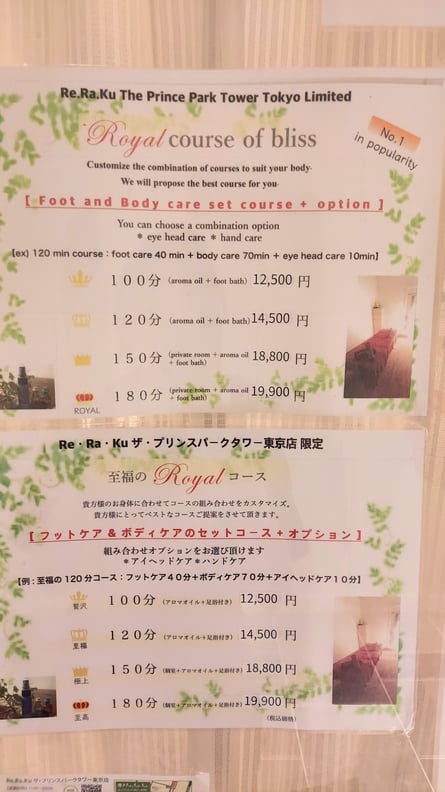 Re.Ra.Ku The Prince Park Tower Tokyo Limited
Royal course of bliss
No.1
in popularity
Customize the combination of courses to suit your body.
We will propose the best course for you.
[ Foot and Body care set course + option ]
You can choose a combination option
* eye head care * hand care
[ex) 120 min course : foot care 40 min + body care 70min + eye head care 10min]
100分 (aroma oil + foot bath) 12,500 円
120分 (aroma oil + foot bath) 14,500 円
150分 (private room + aroma oil + foot bath) 18,800 円
180分 (private room + aroma oil + foot bath) 19,900 円
ROYAL
Re・Ra・Ku ザ・プリンスパークタワー東京店 限定
至福の Royal コース
貴方様のお身体に合わせてコースの組み合わせをカスタマイズ。
貴方様にとってベストなコースご提案をさせて頂きます。
[ フットケア & ボディケアのセットコース + オプション ]
組み合わせオプションをお選び頂けます
*アイヘッドケア*ハンドケア
【例 : 至福の120分コース : フットケア40分+ボディケア70分+アイヘッドケア10分】
贅沢 100分 (アロマオイル+足浴付き) 12,500 円
至福 120分 (アロマオイル+足浴付き) 14,500 円
極上 150分 (個室+アロマオイル+足浴付き) 18,800 円
至高 180分 (個室+アロマオイル+足浴付き) 19,900 円
(税込価格)
Re.Ra.Ku ザ・プリンスパークタワー東京店